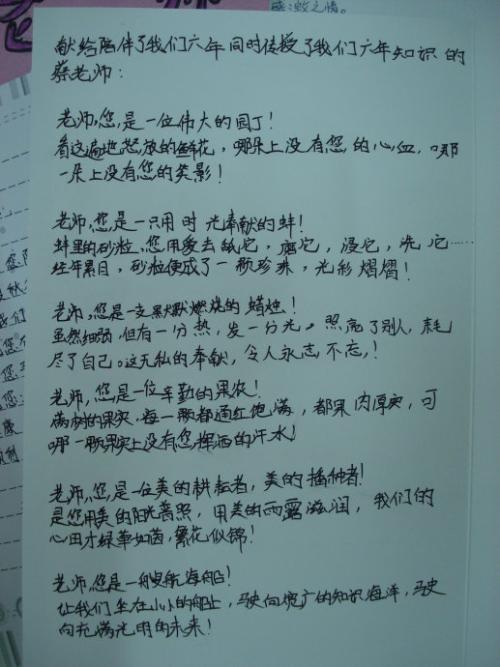 感激之情。
献给陪伴了我们六年同时传授了我们六年知识的
蔡老师:
老师,您,是一位伟大的园丁!
看这遍地怒放的鲜花,哪朵上没有您的心血,哪
一朵上没有您的笑影!
老师,您是一只用时光奉献的蚌!
蚌里的砂粒,您用爱去舐它,磨它,浸它,洗它……
经年累月,砂粒便成了一颗珍珠,光彩熠熠!
老师,您是一支默默燃烧的蜡烛!
虽然细弱,但有一分热,发一分光。照亮了别人,耗
尽了自己。这无私的奉献,令人永志不忘,!
老师,您是一位辛勤的果农!
满树的果实,每一颗都通红饱满,都果肉厚实,可
哪一颗果实上没有您挥洒的汗水!
老师,您,是一位美的耕耘者,美的播种者!
是您用美的阳光普照,用美的雨露滋润,我们的
心田才绿草如茵,繁花似锦!
老师,您是一艘航海船!
让我们坐在小小的船上,驶向宽广的知识海洋,驶
向充满光明的未来!